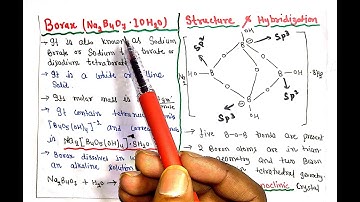 Borax (Na2B4O7·10H2O)
→ It is also known as Sodium
Borate or Sodium borate or
disodium tetraborate.
→ It is a white line
Solid.
→ Its molar mass is
→ It contain tetranuc
[B4O5(OH)4]-2 and corre
is Na2[B4O5(OH)4]·8H2O
→ Borax dissolved in w
an alkaline solution
Na2B4O7 + H2O →
Structure Hybridization
OH
Sp2
B
Sp3
O
O
O
HO-B
B-OH
O
O
B
Sp3
OH
→ five B-O-B bonds are present
→ 2 Boron atoms are in trian
geometry and two Boron
in tetrahedral geometry.
monoclinic Crystal